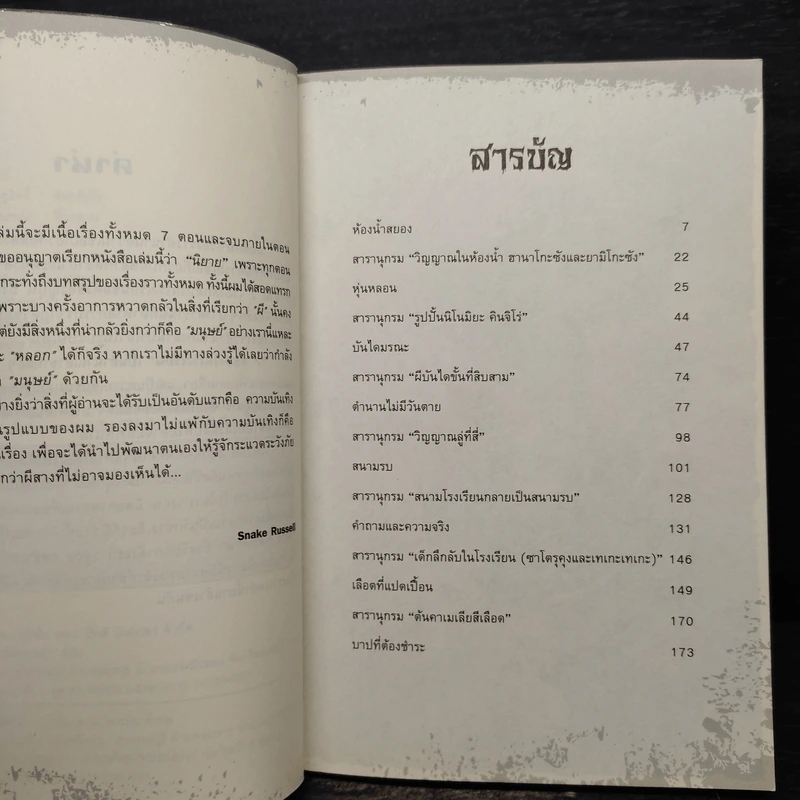 ล่มนี้จะมีเนื้อเรื่องทั้งหมด 7 ตอนและจบภายในตอน
ขออนุญาตเรียกหนังสือเล่มนี้ว่า “นิยาย” เพราะทุกตอน
กระทั่งถึงบทสรุปของเรื่องราวทั้งหมด ทั้งนี้ผมได้สอดแทรก
พราะบางครั้งอาการหวาดกลัวในสิ่งที่เรียกว่า “ผี” นั้นคง
ต่ยังมีสิ่งหนึ่งที่น่ากลัวยิ่งกว่าก็คือ “มนุษย์” อย่างเรานี่แหละ
ะ “หลอก” ได้ก็จริง หากเราไม่มีทางล่วงรู้ได้เลยว่ากำลัง
“มนุษย์” ด้วยกัน
างยิ่งว่าสิ่งที่ผู้อ่านจะได้รับเป็นอันดับแรกคือ ความบันเทิง
นรูปแบบของผม รองลงมาไม่แพ้กับความบันเทิงก็คือ
เรื่อง เพื่อจะได้นำไปพัฒนาตนเองให้รู้จักระแวดระวังภัย
กว่าผีสางที่ไม่อาจมองเห็นได้...
Snake Russell
สารบัญ
ห้องน้ำสยอง 7
สารานุกรม “วิญญาณในห้องน้ำ ฮานาโกะซังและยามิโกะซัง” 22
หุ่นหลอน 25
สารานุกรม “รูปปั้นนิโนมิยะ คินจิโร่” 44
บันไดมรณะ 47
สารานุกรม “ผีบันไดขั้นที่สิบสาม” 74
ตำนานไม่มีวันตาย 77
สารานุกรม “วิญญาณลู่ที่สี่” 98
สนามรบ 101
สารานุกรม “สนามโรงเรียนกลายเป็นสนามรบ” 128
คำถามและความจริง 131
สารานุกรม “เด็กลึกลับในโรงเรียน (ซาโตรุคุงและเทเกะเทเกะ)” 146
เลือดที่แปดเปื้อน 149
สารานุกรม “ต้นคาเมเลียสีเลือด” 170
บาปที่ต้องชำระ 173